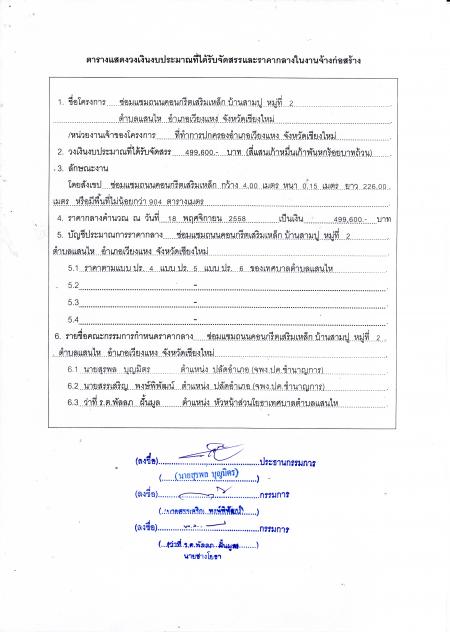 ตารางแสดงวงเงินงบประมาณที่ได้รับจัดสรรและราคากลางในงานจ้างก่อสร้าง
1. ชื่อโครงการ ซ่อมแซมถนนคอนกรีตเสริมเหล็ก บ้านสามปู หมู่ที่ 2
ตำบลแสนไห อำเภอเวียงแหง จังหวัดเชียงใหม่
/หน่วยงานเจ้าของโครงการ ที่ทำการปกครองอำเภอเวียงแหง จังหวัดเชียงใหม่
2. วงเงินงบประมาณที่ได้รับจัดสรร 499,600.- บาท (สี่แสนเก้าหมื่นเก้าพันหกร้อยบาทถ้วน)
3. ลักษณะงาน
โดยสังเขป ซ่อมแซมถนนคอนกรีตเสริมเหล็ก กว้าง 4.00 เมตร หนา 0.15 เมตร ยาว 226.00
เมตร หรือมีพื้นที่ไม่น้อยกว่า 904 ตารางเมตร
4. ราคากลางคำนวณ ณ วันที่ 18 พฤศจิกายน 2558 เป็นเงิน 499,600.- บาท
5. บัญชีประมาณการราคากลาง ซ่อมแซมถนนคอนกรีตเสริมเหล็ก บ้านสามปู หมู่ที่ 2
ตำบลแสนไห อำเภอเวียงแหง จังหวัดเชียงใหม่
5.1 ราคาตามแบบ ปร. 4 แบบ ปร. 5 แบบ ปร. 6 ของเทศบาลตำบลแสนไห
5.2 -
5.3 -
5.4 -
6. รายชื่อคณะกรรมการกำหนดราคากลาง ซ่อมแซมถนนคอนกรีตเสริมเหล็ก บ้านสามปู หมู่ที่ 2
ตำบลแสนไห อำเภอเวียงแหง จังหวัดเชียงใหม่
6.1 นายสุรพล บุญมิตร ตำแหน่ง ปลัดอำเภอ (จพง.ปค.ชำนาญการ)
6.2 นายสรรเสริญ พงษ์พิพัฒน์ ตำแหน่ง ปลัดอำเภอ (จพง.ปค.ชำนาญการ)
6.3 ว่าที่ ร.ต.พัลลภ ฝั้นมูล ตำแหน่ง หัวหน้าส่วนโยธาเทศบาลตำบลแสนไห
(ลงชื่อ) ประธานกรรมการ
(นายสุรพล บุญมิตร)
(ลงชื่อ) กรรมการ
(นายสรรเสริญ พงษ์พิพัฒน์)
(ลงชื่อ) กรรมการ
(ว่าที่ ร.ต.พัลลภ ฝั้นมูล)
นายช่างโยธา